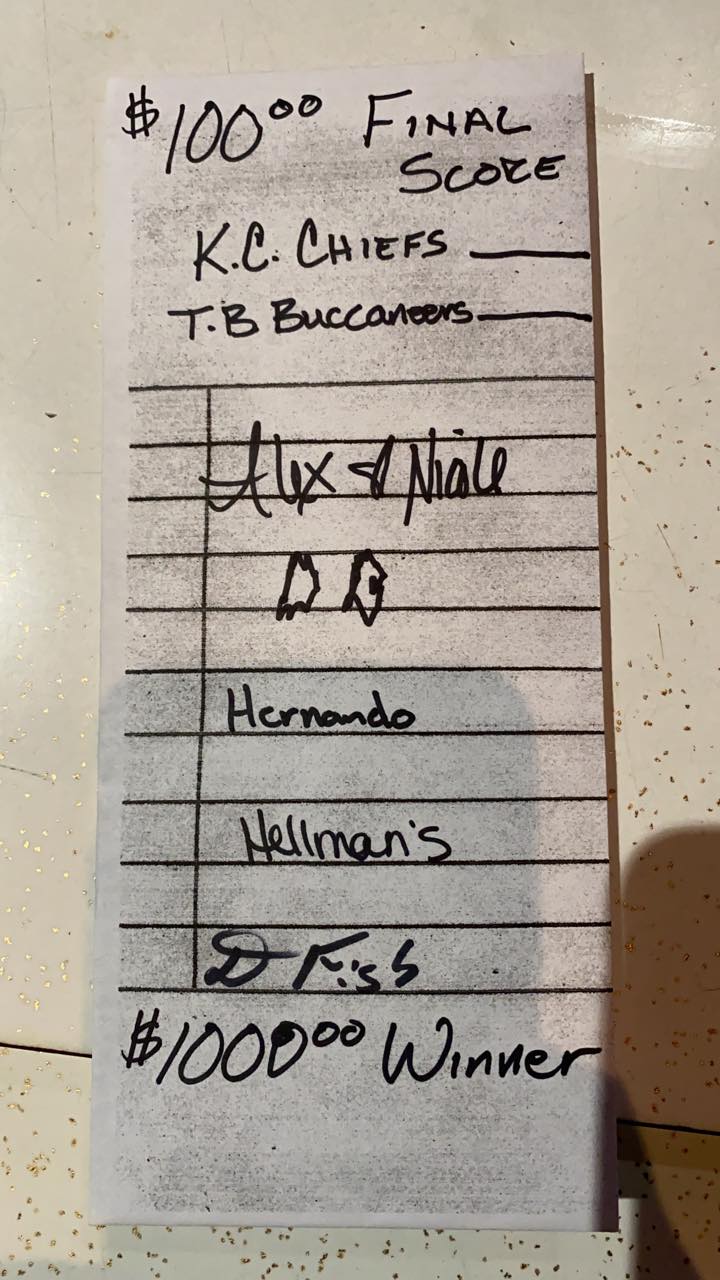 $100⁰⁰ FINAL
SCORE
K.C. CHIEFS
T.B Buccaneers
Alex & Nicole
Hernando
Hellman's
D Fish
$1000⁰⁰ Winner